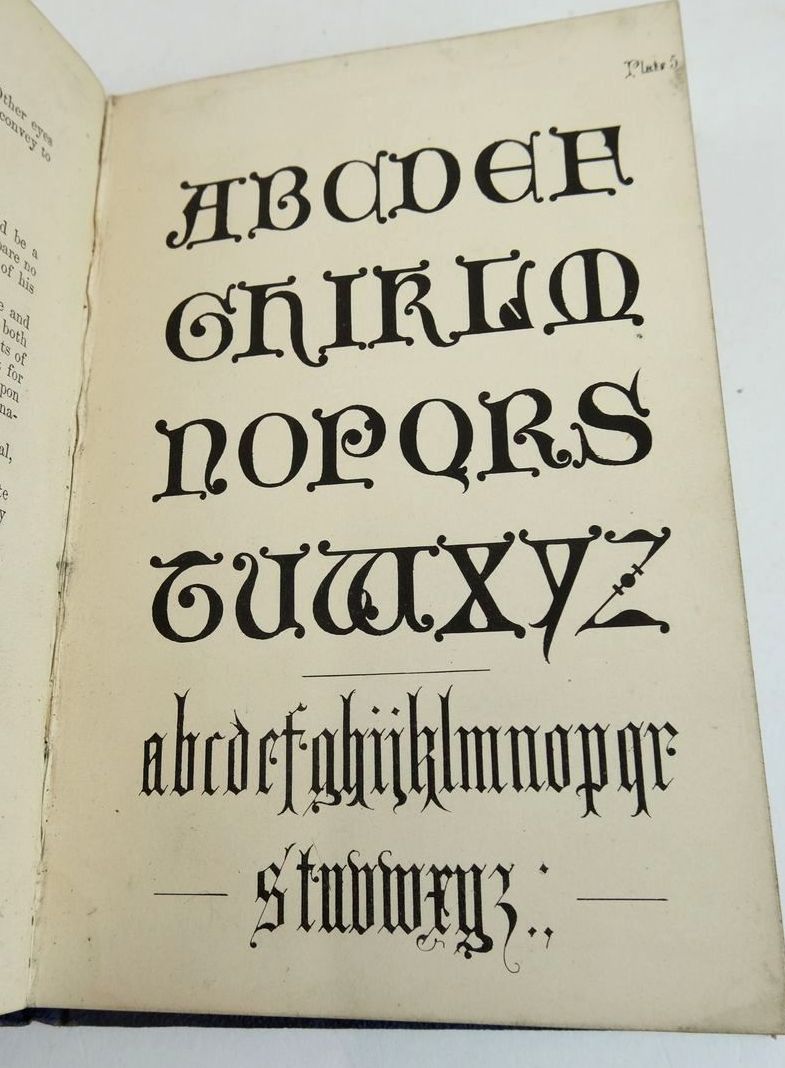 Other eyes
convey to
d be a
pare no
of his
e and
both
ts of
for
pon
na-
al,
te
y
Plate 5
ABCDEF
GHIKLM
NOPQRS
TUWXYZ
abcdefghijklmnopqr
stuvwxyz.,: